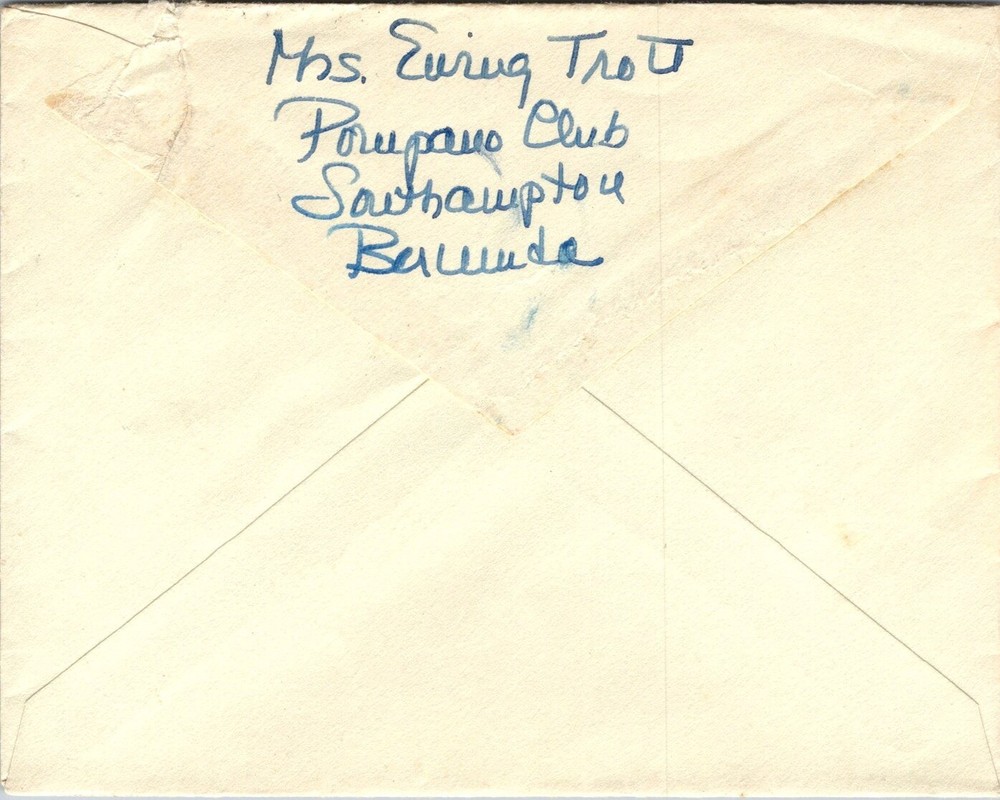 Mrs. Ewing Trott
Pompano Club
Southampton
Bermuda